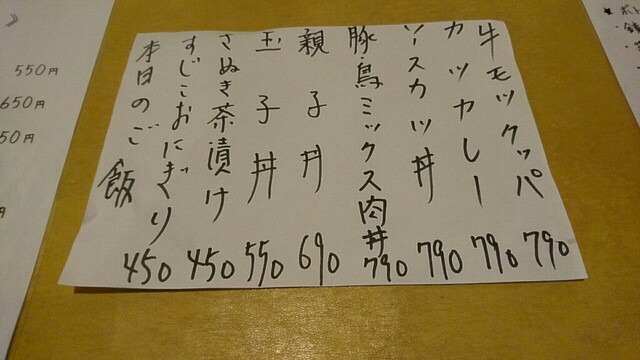 牛モツクッパ 790
カツカレー 790
ソースカツ丼 790
豚・鳥ミックス肉丼 790
親子丼 690
玉子丼 550
さぬき茶漬け 450
すじこおにぎり
本日のご飯 450
》
550円
650円
50円